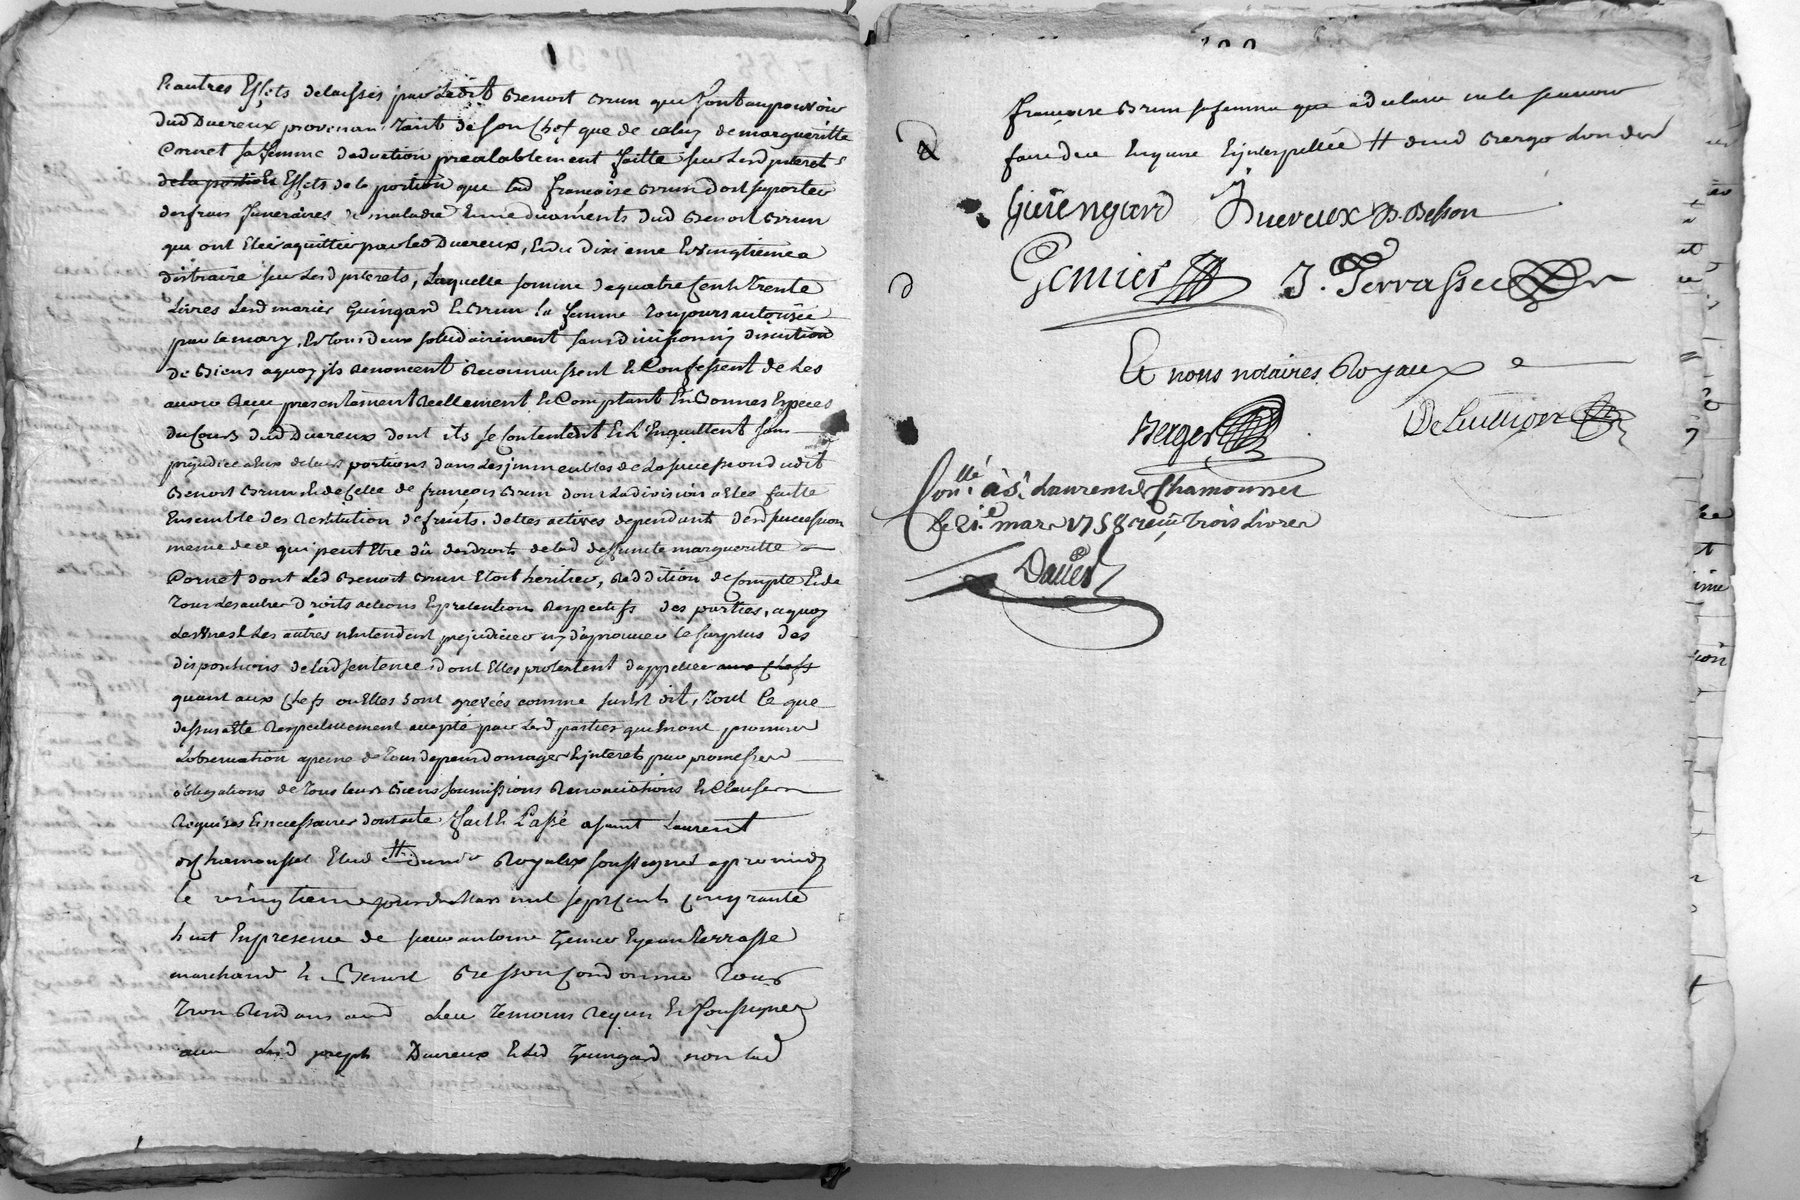 Et autres Effets delaissés par Ledit Benoit Brun qui sont au pouvoir
dud Ducreux provenan tant de son Chef que de celuy de margueritte
Cornet sa femme deduction prealablement faitte sur Lesd interets
de la portion Effets de la portion que lad françoise Brun doit suporter
des frais funeraires de maladie Et medicaments dud Benoit Brun
qui ont Eté aquittés par led Ducreux, Et du dixieme Et vingtieme a
distraire sur Lesd interets, Laquelle somme de quatre Cents Trente
Livres Lesd mariés Guingard Et Brun la femme toujours autorisée
par le mary, Et tous deux solidairement sans division ny discution
de Biens a quoy ils renoncent Reconnaissent Et Confessent de Les
avoir Reçu presentement Reellement Et Comptant En Bonnes Especes
du Cours dud Ducreux dont ils se Contentent Et L'Enquittent sans
prejudice a Eux de leurs portions dans Les immeubles de La succession dudit
Benoit Brun Et de Celle de françois Brun dont La division a Eté faitte
Ensemble des Restitution de fruits, dettes actives dependants desd succession
meme de ce qui peut Etre dû des droits de lad deffunte margueritte
Cornet dont Led Benoit Brun Etoit heritier, Reddition de Compte Et de
tous Les autres Droits actions Et pretentions Respectifs des parties, a quoy
Les Unes Et Les autres n'Entendent prejudicier ny d'aprouver le surplus des
dispositions de lad sentence, dont Elles protestent d'appeller aux Chefs
quant aux Chefs ou Elles sont grevées comme sus Est dit, tout Ce que
dessus a Eté Respectivement accepté par Lesd parties qui En ont promis
L'observation a peine de tous depens domages Et interets par promesses
obligations de tous leurs Biens soumissions Renonciations Et Clauses
Requises Et necessaires dont acte fait Et Passé a saint Laurent
de Chamousset Etude # Royaux soussignés apres midy
le vingtieme jour de Mars mil sept Cents Cinquante
huit En presence de sieur antoine Genier Et jean Terrasse
marchand Et Benoit Besson Cordonnier tous
trois Residans aud Lieu temoins Requis Et soussignés
avec Lesd joseph Ducreux Et Led Guingard non lad
françoise Brun sa femme qui a declaré ne le scavoir
faire de ce Enquise Et interpellée # dud Berger L'un des
Guiengard Ducreux B. Besson
Genier J. Terrasse
Et nous notaires Royaux
Berger DeLuvigne
Con.llé à St Laurent de Chamousset
Le 21.e mars 1758 reçu trois Livres
Daver